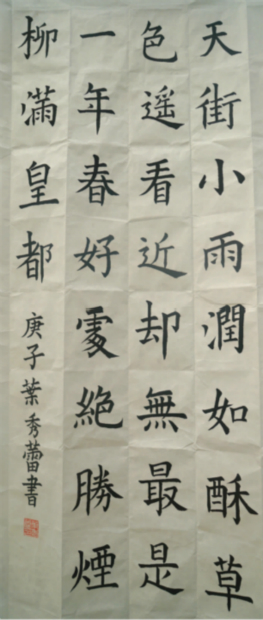 天街小雨潤如酥草
色遥看近却無最是
一年春好處絕勝煙
柳滿皇都
庚子葉秀蕾書